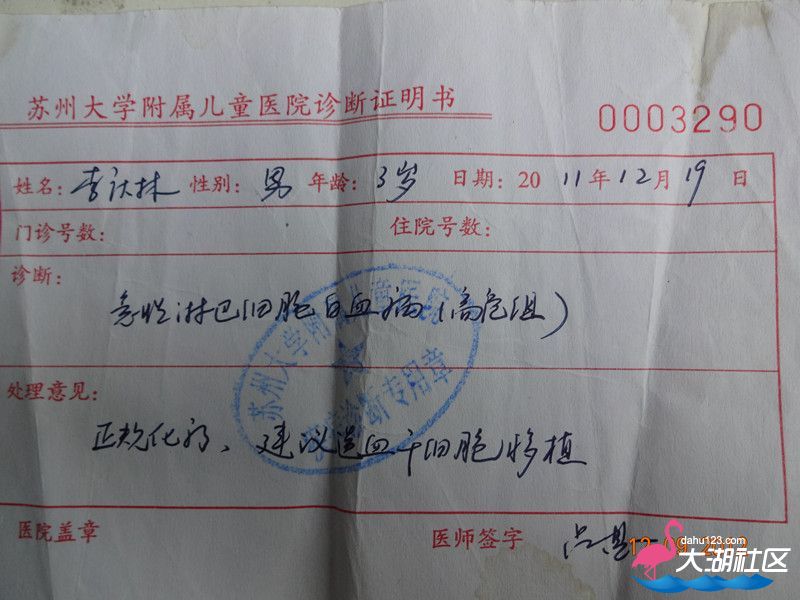 苏州大学附属儿童医院诊断证明书
0003290
姓名: 李 林 性别: 男 年龄: 3岁 日期: 2011年12月19日
门诊号数: 住院号数:
诊断:
急性淋巴细胞白血病(高危组)
苏州大学附属儿童医院
诊断专用章
处理意见:
正规化疗、建议造血干细胞移植
医院盖章 医师签字
dahu123.com
大湖社区